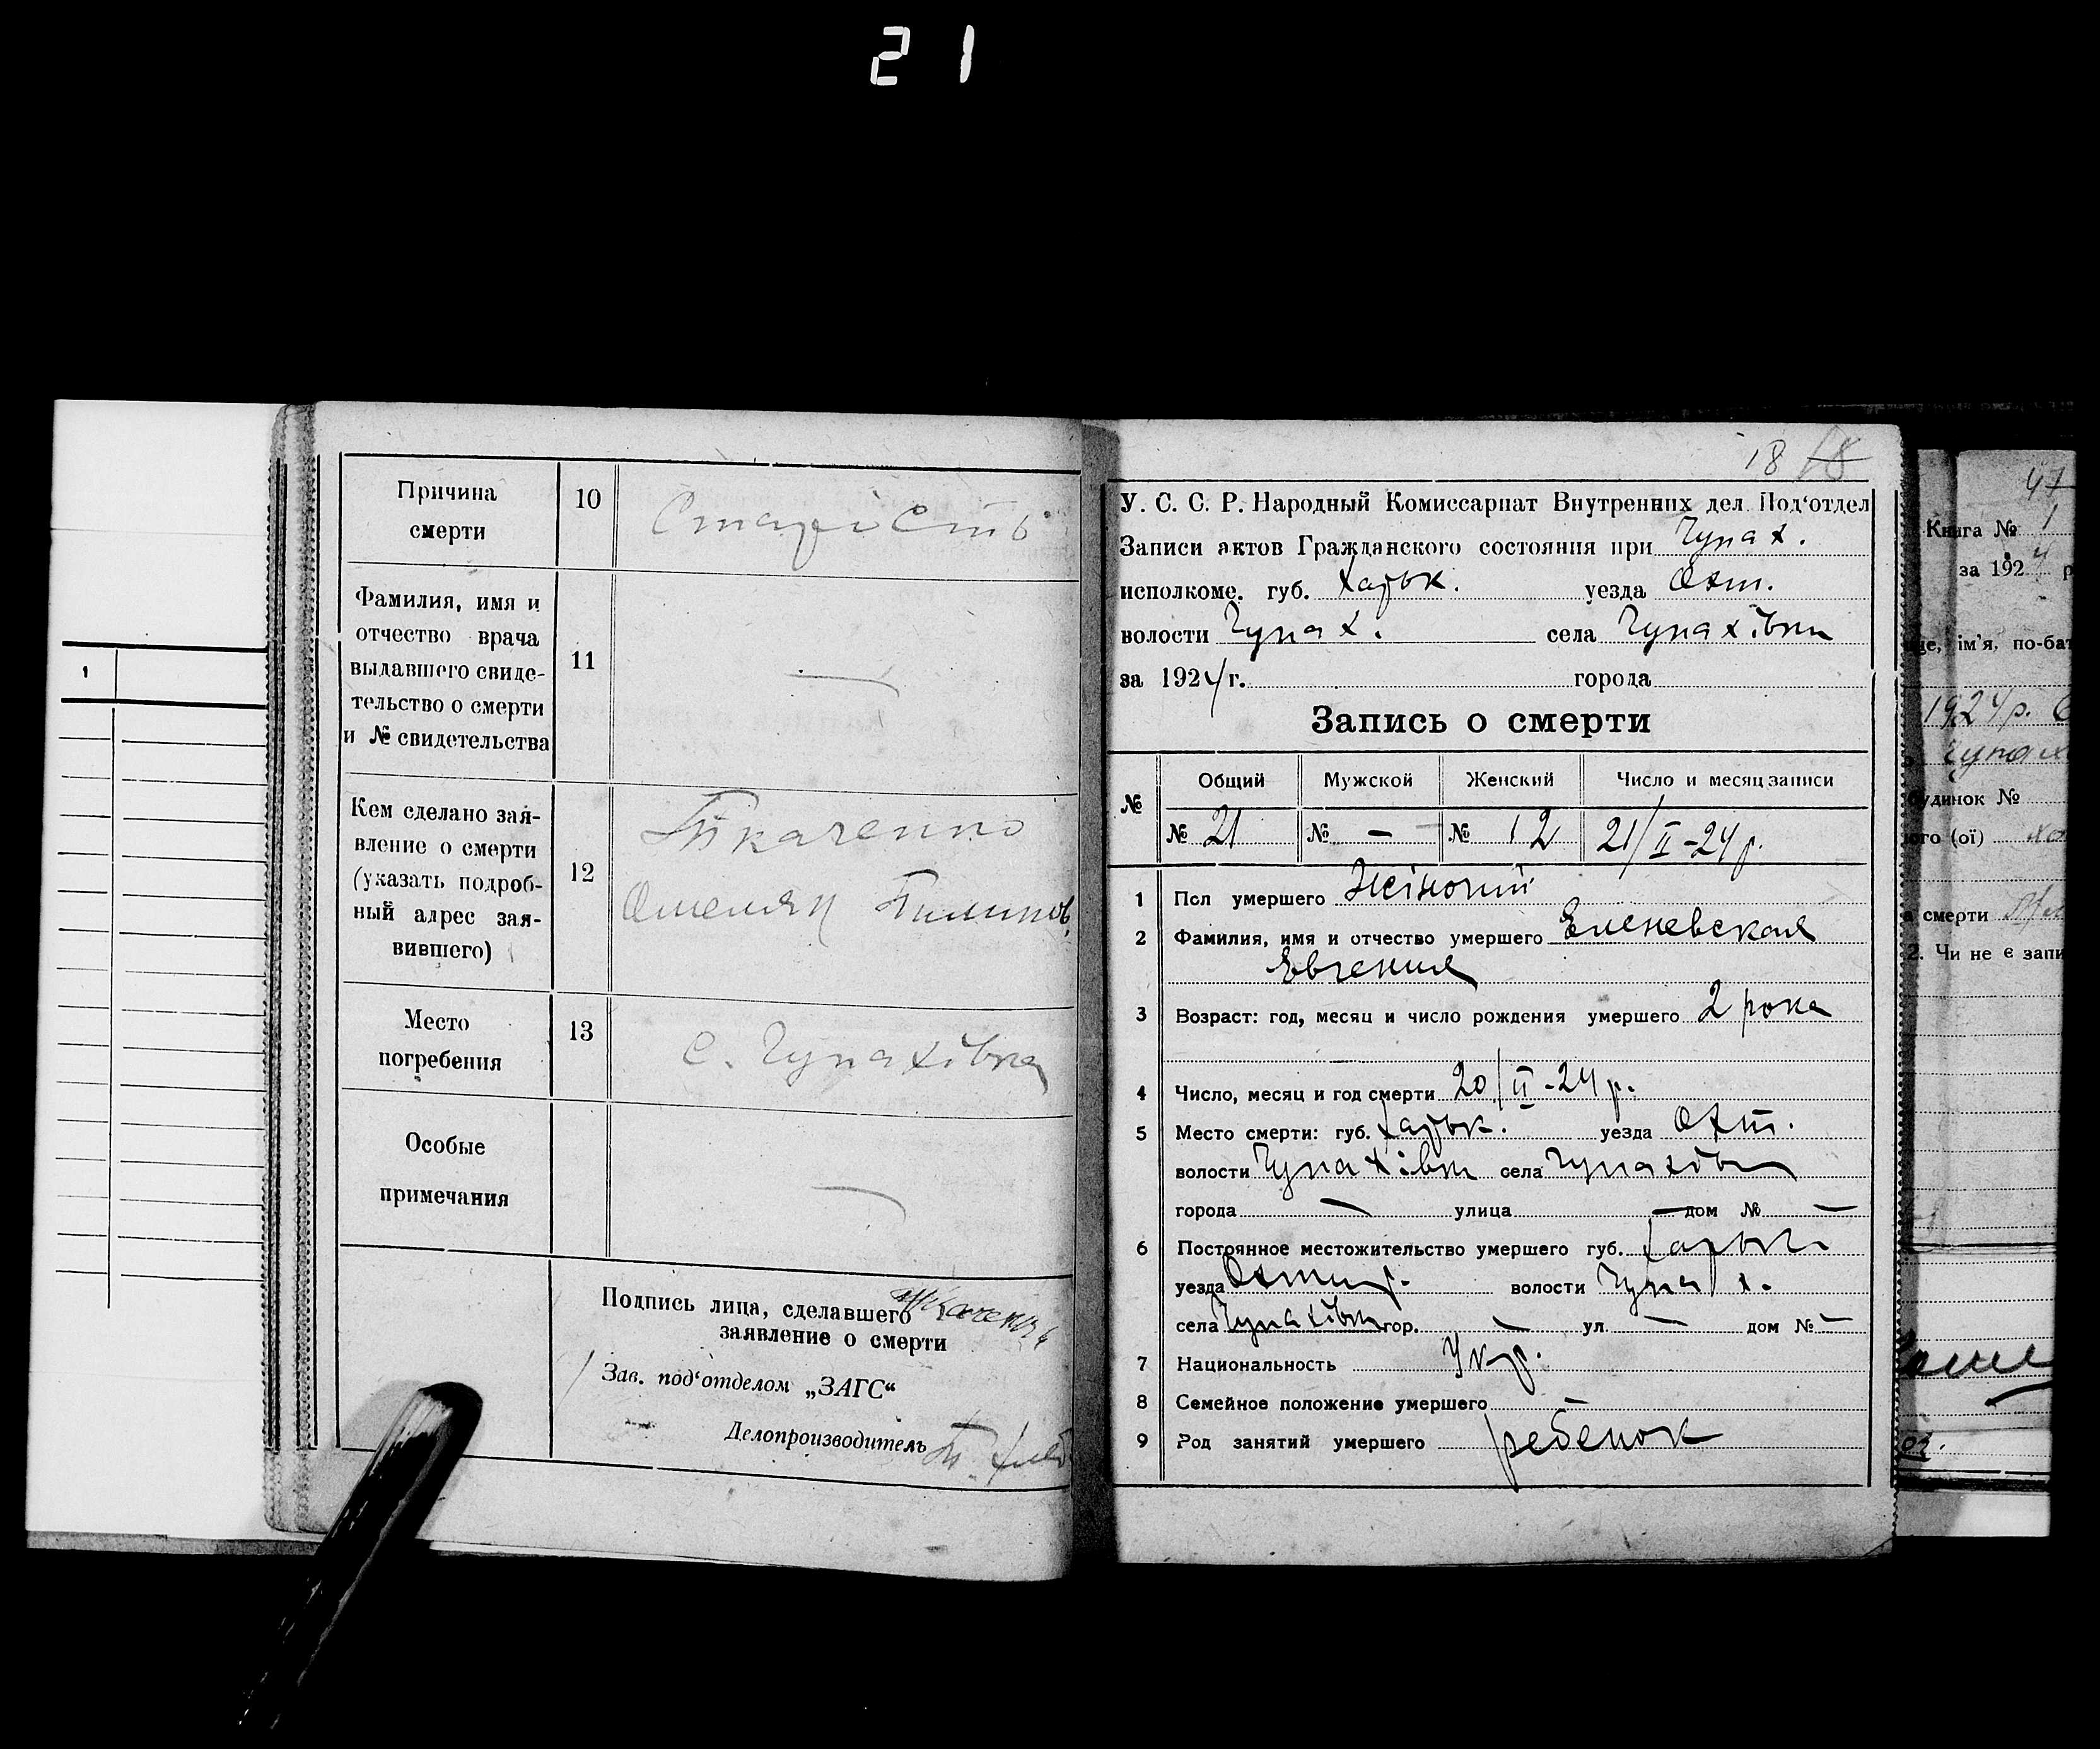 21
1
Причина
смерти
10
Старість
Фамилия, имя и
отчество врача
выдавшего свиде-
тельство о смерти
и № свидетельства
11
—
Кем сделано зая-
вление о смерти
(указать подроб-
ный адрес зая-
вившего)
12
Ткаченко
Омелян Пилипов.
Место
погребения
13
с. Чупахівка
Особые
примечания
—
Подпись лица, сделавшего Ткаченко
заявление о смерти
Зав. под‘отделом „ЗАГС“
Делопроизводитель
18 18
У. С. С. Р. Народный Комиссариат Внутренних дел Под‘отдел
Записи актов Гражданского состояния при Чупах.
исполкоме. губ. Харьк. уезда Охт.
волости Чупах. села Чупахівки
за 1924 г. города
Запись о смерти
№ Общий Мужской Женский Число и месяц записи
№ 21 № — № 12 21/II-24 р.
1 Пол умершего Жіночий
2 Фамилия, имя и отчество умершего Еленевская
Евгения
3 Возраст: год, месяц и число рождения умершего 2 рока
—
4 Число, месяц и год смерти 20/II-24 р.
5 Место смерти: губ. Харьк. уезда Охт.
волости Чупахівки села Чупахівки
города — улица — дом № —
6 Постоянное местожительство умершего губ. Харьк.
уезда Охтир. волости Чупах.
села Чупахівки гор. — ул. — дом № —
7 Национальность Укр.
8 Семейное положение умершего
9 Род занятий умершего ребенок
47
Книга № 1
за 1924 р
ім'я, по-бат
1924 р.
Чупах
будинок №
ого (ої)
смерти
2. Чи не є запи